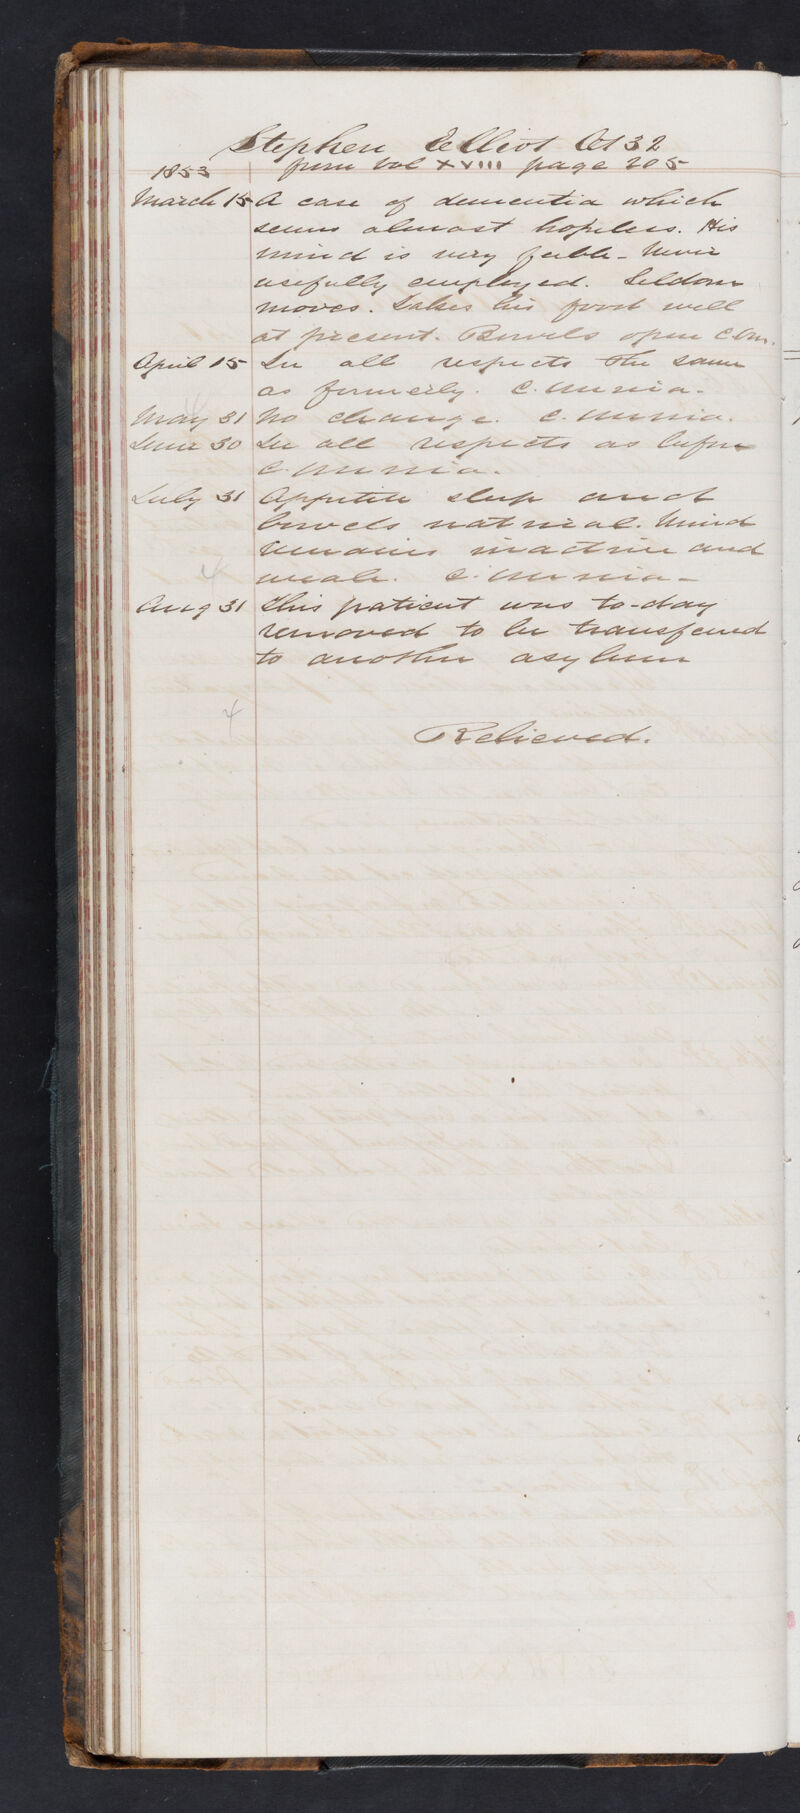 Stephen Elliot Æt 32
1853 from Vol XVIII page 205
March 15 A case of dementia which
seems almost hopeless. His
mind is very feeble - Never
usefully employed. Seldom
moves. Takes his food well
at present. Bowels open
April 15 In all respects the same
as formerly. C. M
May 31 No change. C. M
June 30 In all respects as before
C. M
July 31 Appetite sleep and
bowels natural. Mind
remains inactive and
weak. C. M
4
Aug 31 This patient was to-day
removed to be transferred
to another asylum
4
Relieved.